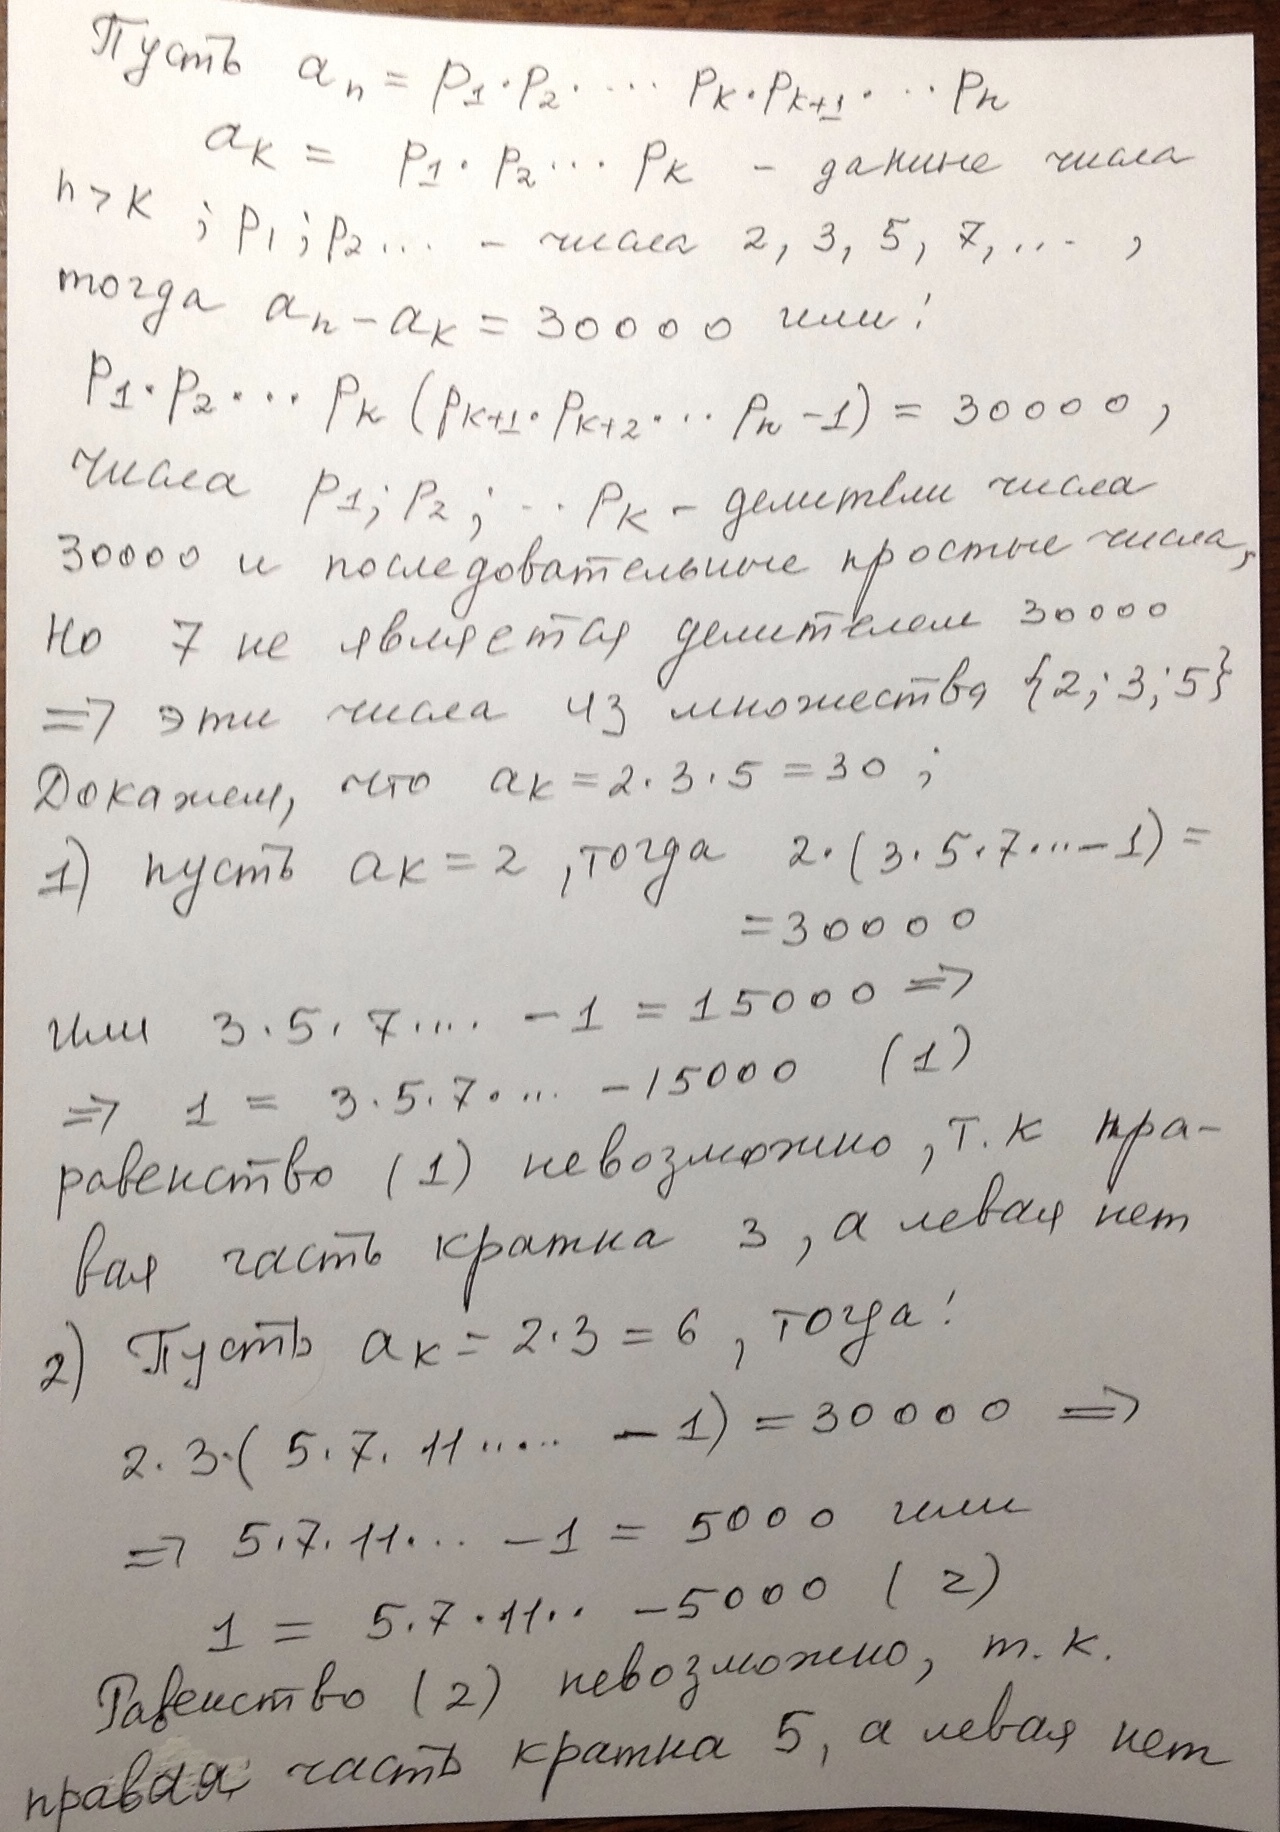 Пусть aₙ = p₁·p₂·… pₖ·pₖ₊₁·… pₙ
aₖ = p₁·p₂… pₖ – данные числа
n>k ; p₁; p₂… – числа 2, 3, 5, 7, … ,
тогда aₙ – aₖ = 30000 или:
p₁·p₂·… pₖ (pₖ₊₁·pₖ₊₂·… pₙ –1) = 30000,
числа p₁; p₂; … pₖ – делители числа
30000 и последовательные простые числа,
Но 7 не является делителем 30000
=> эти числа из множества {2; 3; 5}
Докажем, что aₖ = 2·3·5 = 30 ;
1) пусть aₖ = 2, тогда 2·(3·5·7·…–1) =
= 30000
или 3·5·7·… –1 = 15000 =>
=> 1 = 3·5·7·… –15000 (1)
равенство (1) невозможно, т.к пра-
вая часть кратна 3, а левая нет
2) Пусть aₖ = 2·3 = 6, тогда:
2·3·(5·7·11·… –1) = 30000 =>
=> 5·7·11·… –1 = 5000 или
1 = 5·7·11·· –5000 (2)
Равенство (2) невозможно, т.к.
правая часть кратна 5, а левая нет